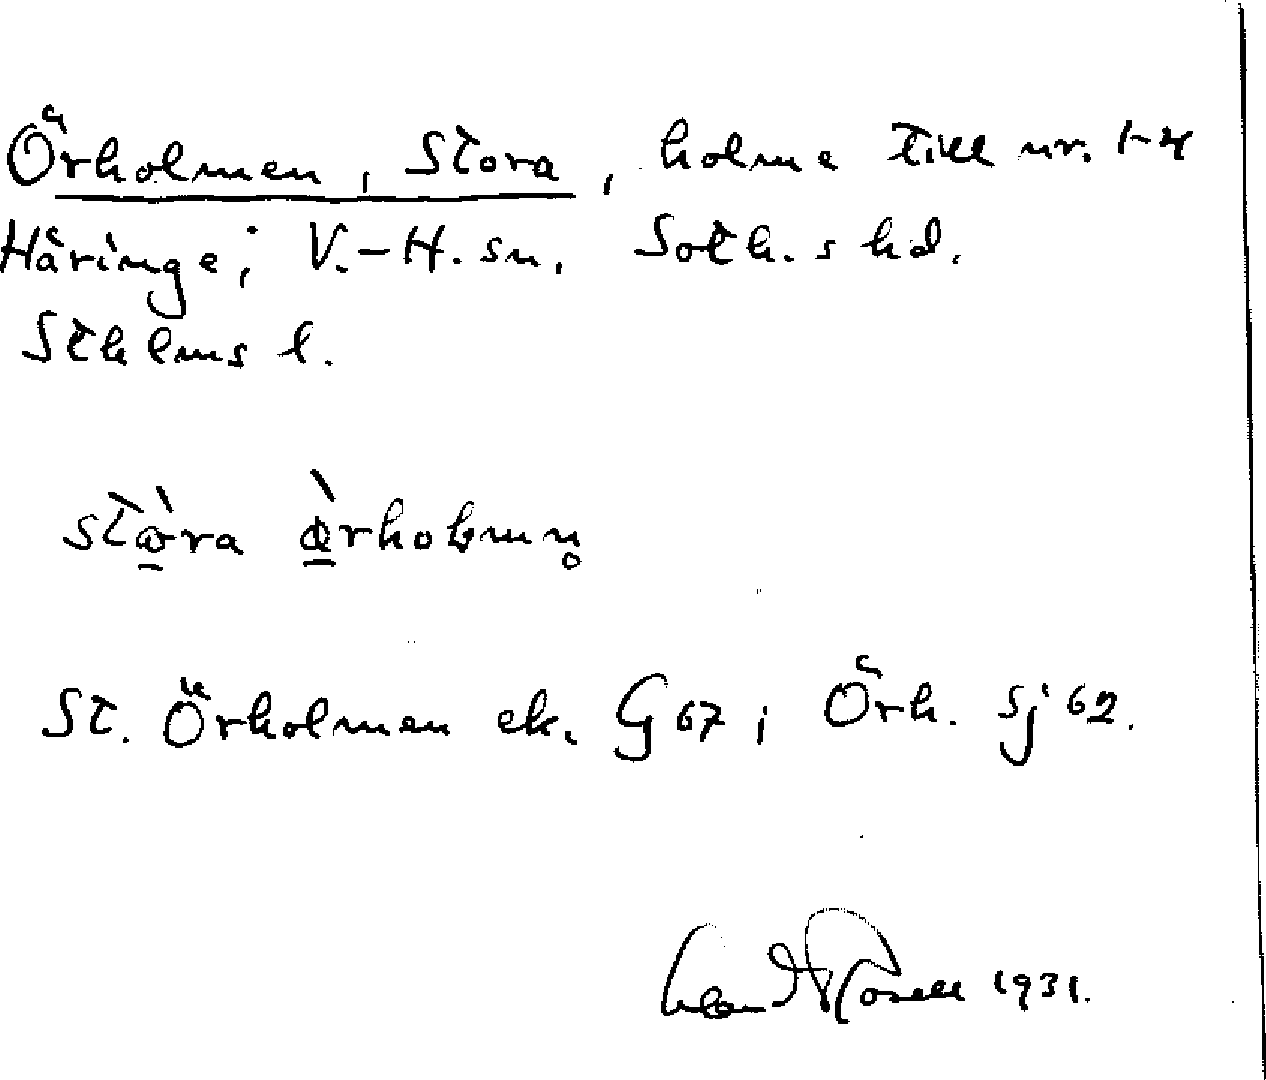 Örholmen, Stora, holme till nr. 1-4
Häringe; V.-H. sn. Soth. s hd.
Sthlms l.
St. Örholmen ek. G 67; Örh. Sj 62.
1931.